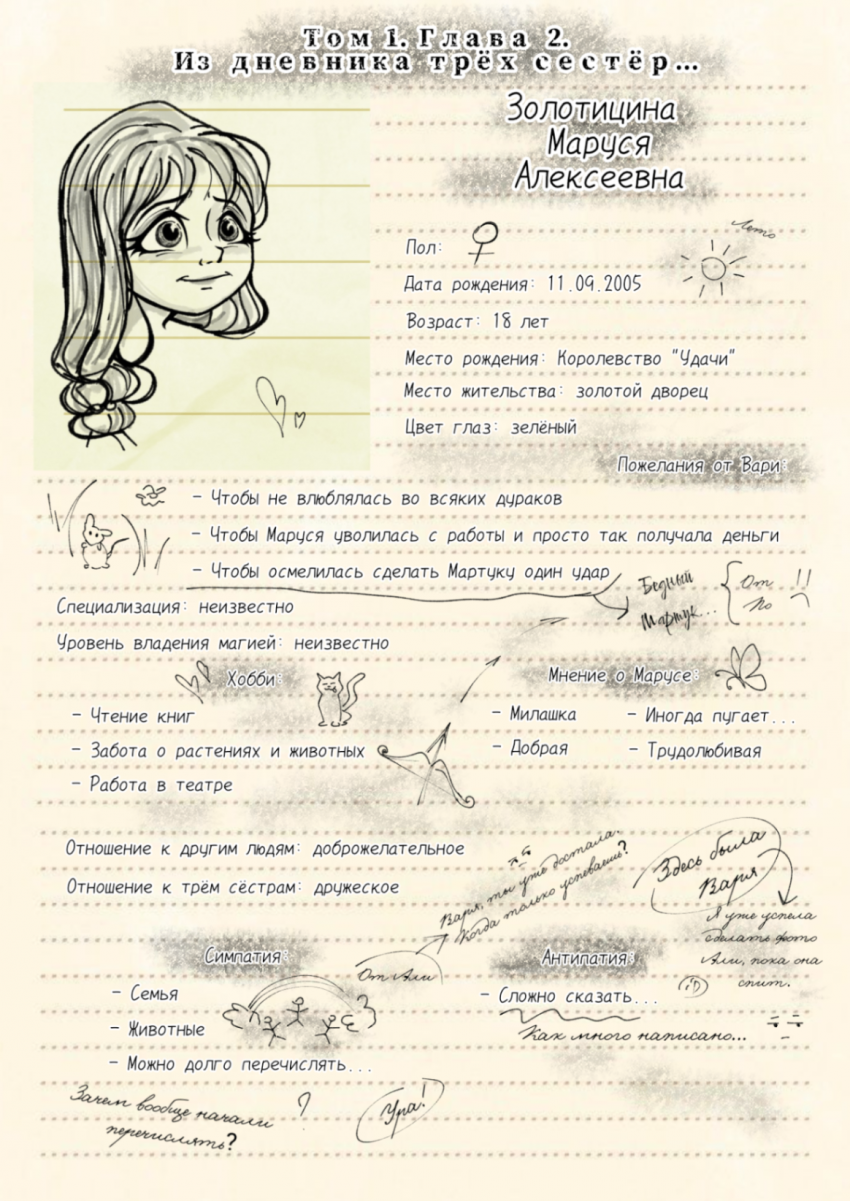 Том 1. Глава 2.
Из дневника трёх сестёр...
Золотицина
Маруся
Алексеевна
Лето
Пол: ♀
Дата рождения: 11.09.2005
Возраст: 18 лет
Место рождения: Королевство "Удачи"
Место жительства: золотой дворец
Цвет глаз: зелёный
Пожелания от Вари:
- Чтобы не влюблялась во всяких дураков
- Чтобы Маруся уволилась с работы и просто так получала деньги
- Чтобы осмелилась сделать Мартуку один удар
Бедный
Мартук...
От
По
!!
Специализация: неизвестно
Уровень владения магией: неизвестно
Хобби:
- Чтение книг
- Забота о растениях и животных
- Работа в театре
Мнение о Марусе:
- Милашка
- Иногда пугает...
- Добрая
- Трудолюбивая
Отношение к другим людям: доброжелательное
Отношение к трём сёстрам: дружеское
Варя, ты уже достала.
Когда только успеваешь?
От Али
Здесь была
Варя
Я уже успела
сделать фото
Али, пока она
спит.
:D
Симпатия:
- Семья
- Животные
- Можно долго перечислять...
Антипатия:
- Сложно сказать...
Как много написано...
Зачем вообще начали
перечислять?
?
Ура!